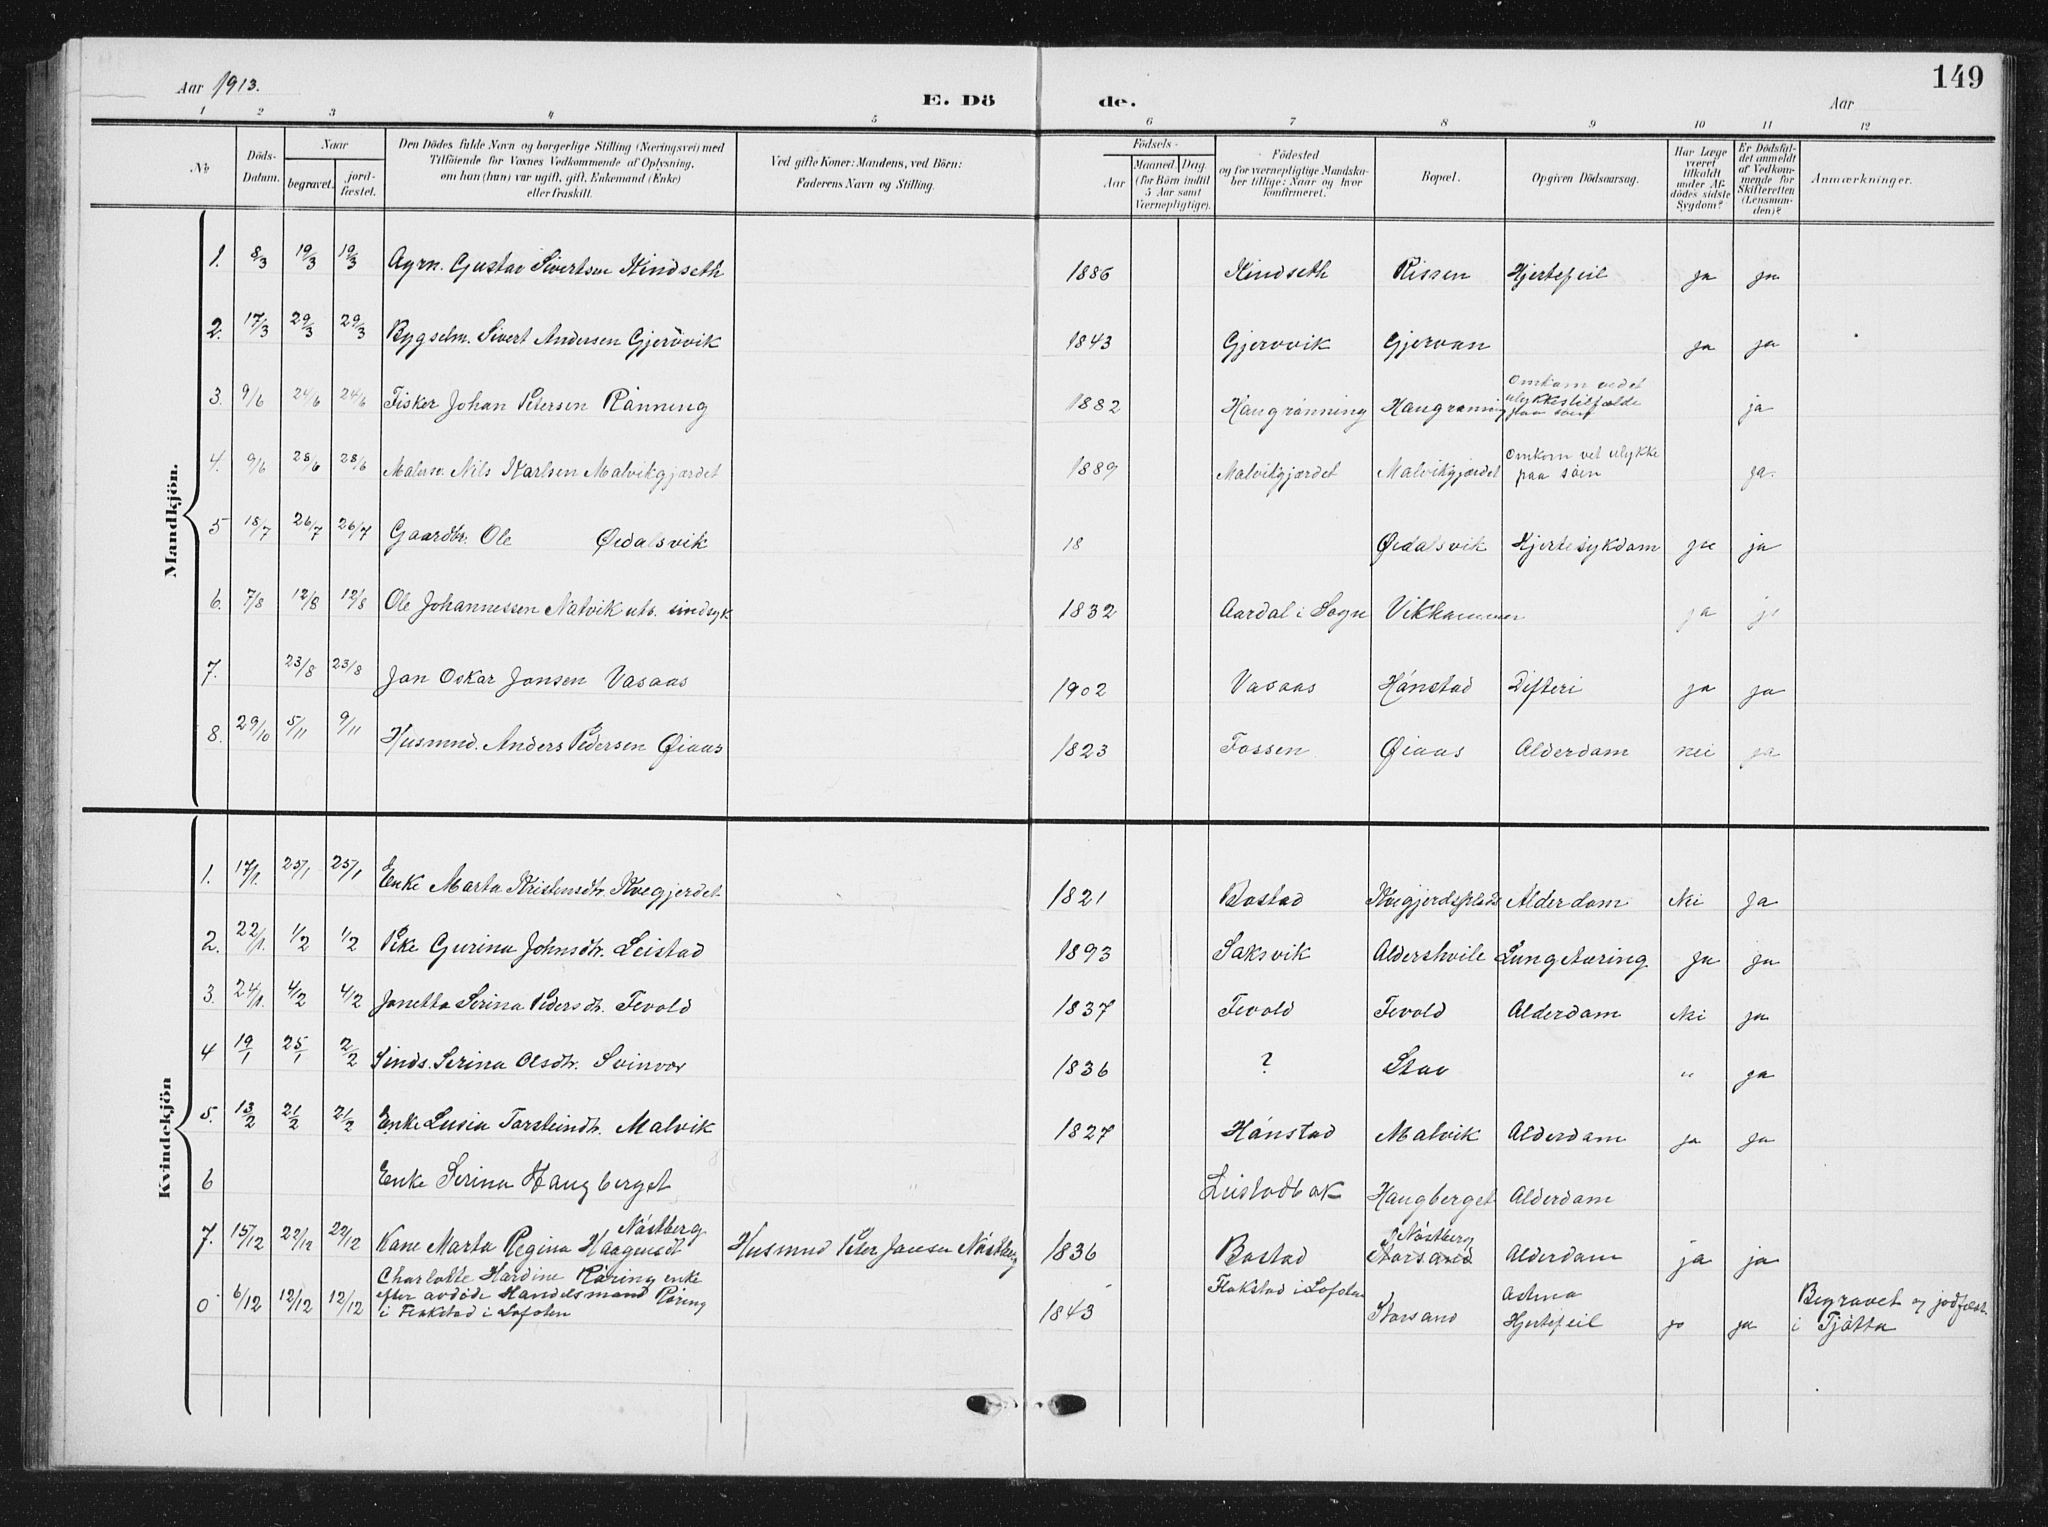 Aar 1913.
E. Dö de.
Aar
149
1 2 3 4 5 6 7 8 9 10 11 12
No
Döds-Datum.
Naar
begravet.
jord-fæstet.
Den Dödes fulde Navn og borgerlige Stilling (Næringsvei) med
Tilföiende for Voxnes Vedkommende af Oplysning,
om han (hun) var ugift, gift, Enkemand (Enke)
eller fraskilt.
Ved gifte Koner: Mandens, ved Börn:
Faderens Navn og Stilling.
Födsels-
Aar
Maaned.
Dag.
(for Börn indtil
5 Aar samt
Værnepligtige).
Födested
og for værnepligtige Mandska-
ber tillige: Naar og hvor
konfirmeret.
Bopæl.
Opgiven Dödsaarsag.
Har Læge
været
tilkaldt
under Af-
dödes sidste
Sygdom?
Er Dödsfal-
det anmeldt
af Vedkom-
mende for
Skifteretten
(Lensman-
den)?
Anmærkninger.
Mandkjön.
1. 8/3 19/3 19/3 Agrn. Gustav Sivertsen Kindseth 1886 Kindseth Rissen Hjertefeil ja ja
2. 17/3 29/3 29/3 Bygselm. Sivert Andersen Gjervvik 1843 Gjervvik Gjervan ja ja
3. 9/6 24/6 24/6 Fisker Johan Petersen Rånning 1882 Haugrånning Haugrånning Omkom vedet ulykkestilfælde paa söen ja
4. 9/6 28/6 28/6 Malersv. Nils Karlsen Malvikgjærdet 1889 Malvikgjærdet Malvikgjærdet Omkom vet ulykke paa söen ja.
5 18/7 26/7 26/7 Gaardbr. Ole Øidalsvik 18 Øidalsvik Hjertesykdam ja ja
6. 7/8 12/8 12/8 Ole Johannessen Natvik uts. sindsyk 1832 Aardal i Sogn Vikhammer ja ja
7. 23/8 23/8 Jon Oskar Jonsen Vasaas 1902 Vasaas Hånstad Difteri ja ja
8. 29/10 5/11 9/11 Husmnd. Anders Pedersen Øiaas 1823 Fossen Øiaas Alderdam nei ja
Kvindekjön
1. 17/1. 25/1 25/1 Enke Marta Kristensdtr. Kvegjerdet 1821 Bostad Kvegjerdsplads Alderdom Nei Ja
2. 22/1. 1/2 1/2 Pike Gurina Johnsdtr. Leistad 1893 Saksvik Aldershvile Lungetæring Ja ja
3. 24/1. 4/2 4/2 Jonetta Serina Pedersdtr. Fevold 1837 Fevold Fevold Alderdam Nei ja
4 19/1 25/1 2/2 Sinds. Serina Olsdtr. Svinvær 1836 ? Stav " ja
5. 13/2 21/2 21/2 Enke Lusia Torsteindtr. Malvik 1827 Hånstad Malvik Alderdam ja ja
6 Enke Serina Haugberget Leistadbak Haugberget Alderdam
7. 15/12 22/12 22/12 Kone Marta Regina Haagensdt Nåstberg Husmnd Peter Jonsen Nåstberg 1836 Bostad Nåstberg Storsand Alderdam ja ja
0 6/12 12/12 12/12 Charlotte Hardine Råring enke
efter avdøde Handelsmand Råring
i Flakstad i Lofoten 1843 Flakstad i Lofoten Storsand Astma
Hjertefeil ja ja Begravet og jodfæst
i Tjåtta